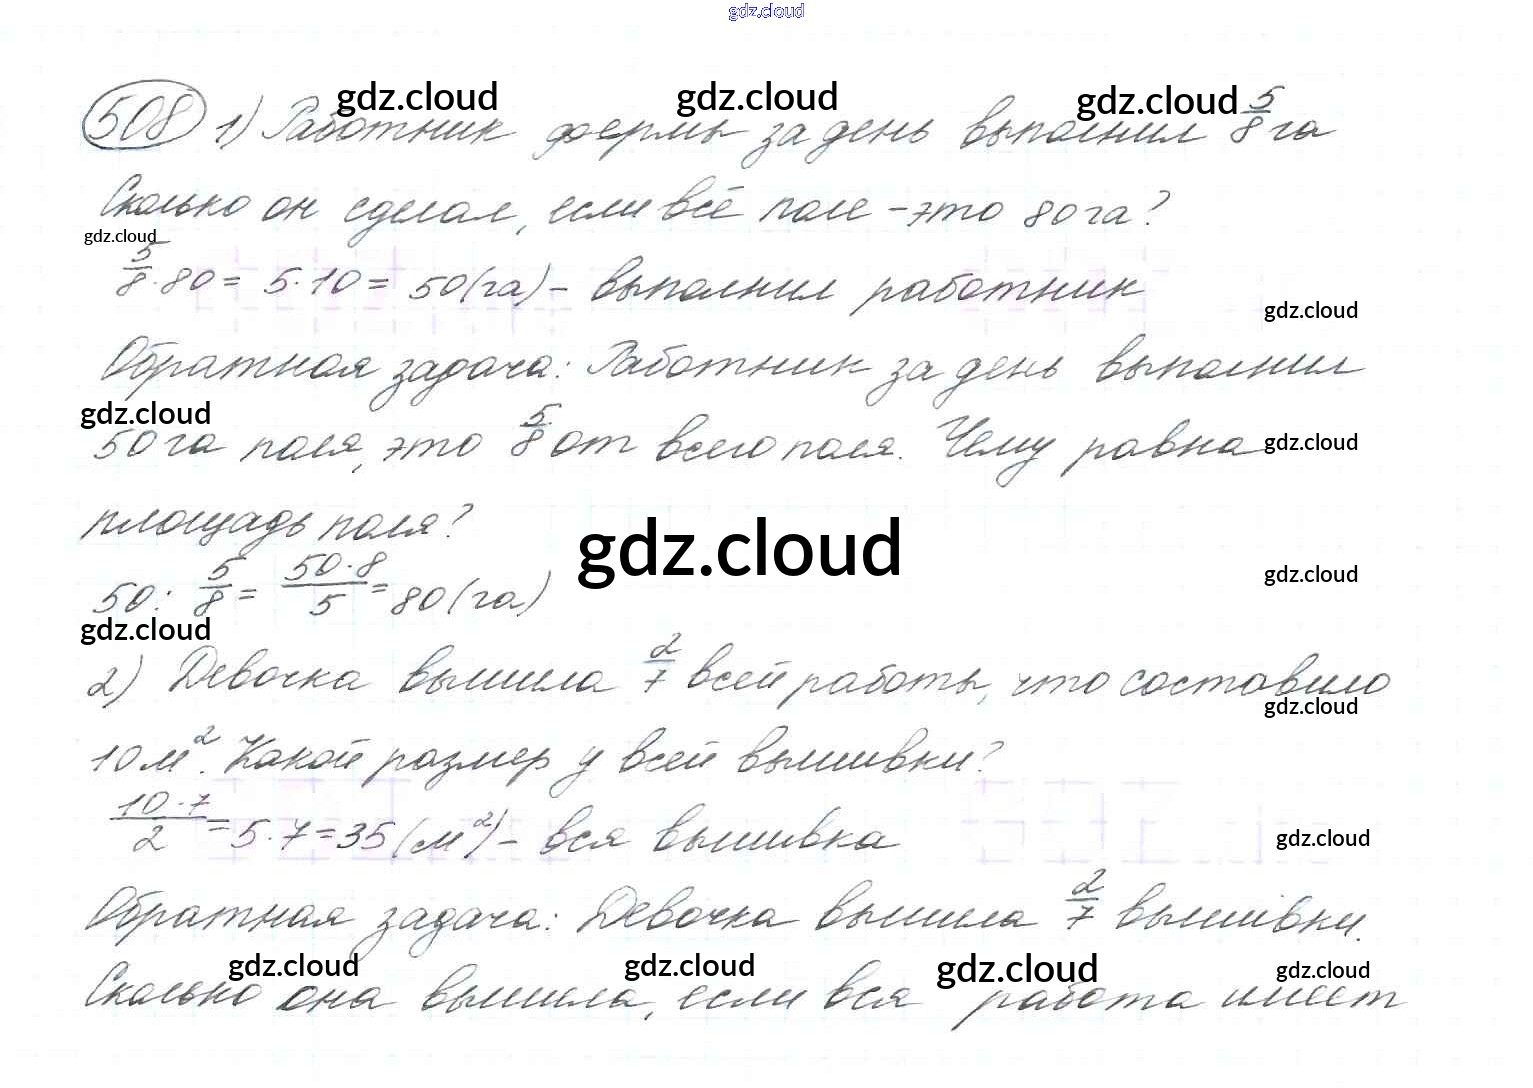 gdz.cloud
gdz.cloud gdz.cloud gdz.cloud
508 1) Работник фермы за день выполнил 5/8 га
Сколько он сделал, если всё поле – это 80 га?
gdz.cloud
5/8 · 80 = 5 · 10 = 50 (га) – выполнил работник
gdz.cloud
Обратная задача: Работник за день выполнил
gdz.cloud
50 га поля, это 5/8 от всего поля. Чему равна
gdz.cloud
площадь поля?
gdz.cloud
50 : 5/8 = 50 · 8/5 = 80 (га)
gdz.cloud
gdz.cloud
2) Девочка вышила 2/7 всей работы, что составило
gdz.cloud
10 м². Какой размер у всей вышивки?
10 · 7/2 = 5 · 7 = 35 (м²) – вся вышивка
gdz.cloud
Обратная задача: Девочка вышила 2/7 вышивки.
gdz.cloud gdz.cloud gdz.cloud gdz.cloud
Сколько она вышила, если вся работа имеет